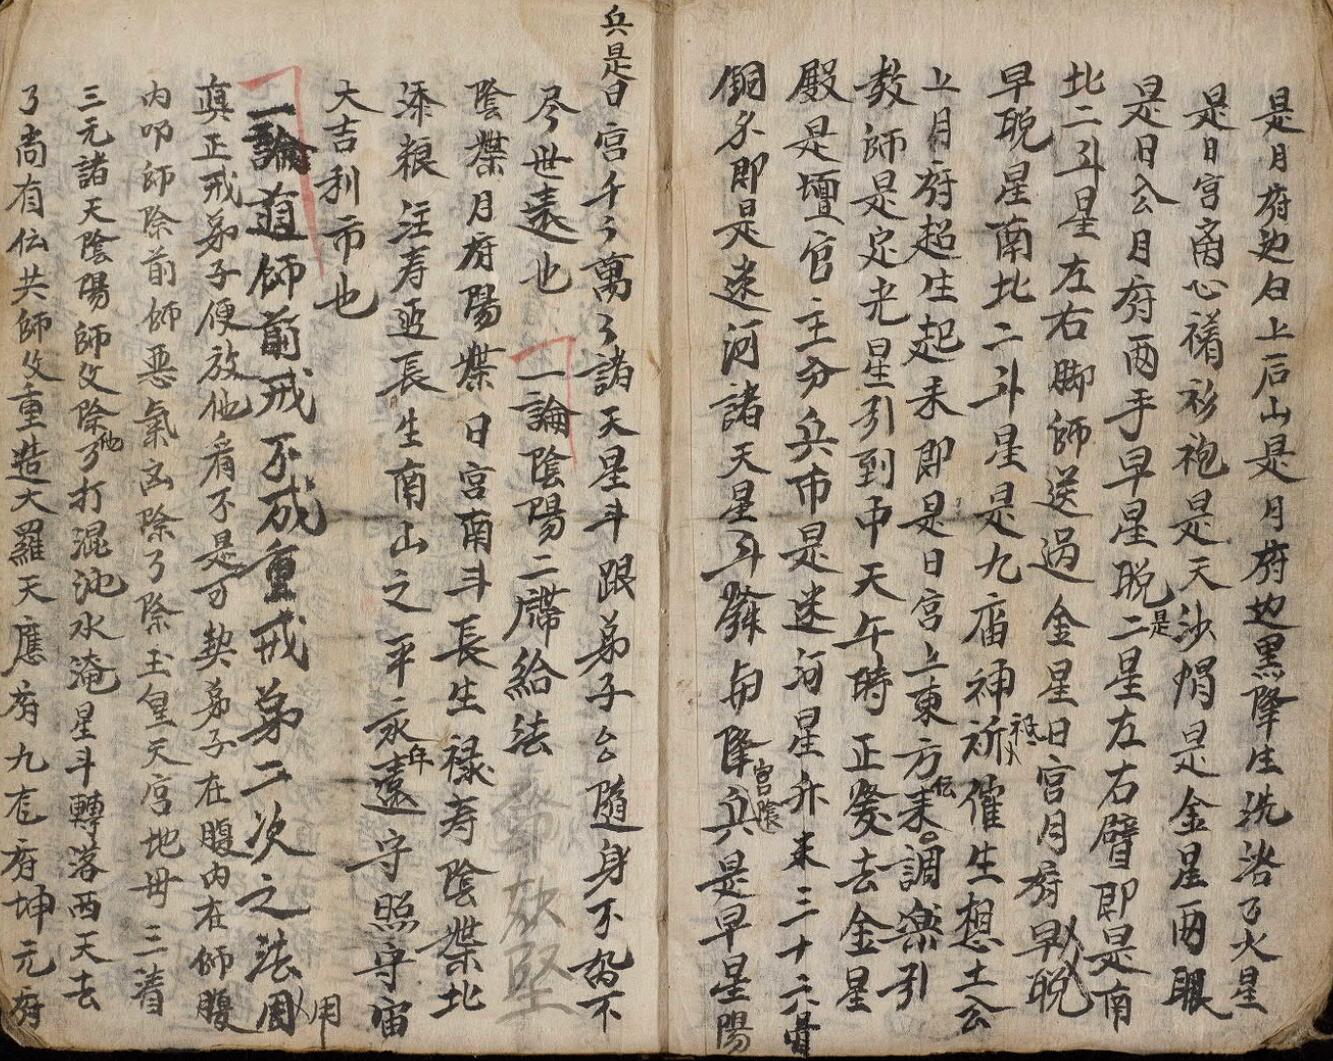 是月府边白上后山是月府边黑降生洗浴了火星
是日宮离心襔衫袍是天沙帽是金星两眼
是日公月府两手早星脱是二星左右臂即是南
北二斗星左右脚師送過金星日宮月府早脱
早脱星南北二斗星是九庙神祈祗人催生想土公
上月府超生起来即是日宮上東方伝来調楽引
教師是定光星引到中天午時正發去金星
殿是壇官主分兵巿是迷河星斗来三十六骨
個尔即是迷河諸天星斗發与降宮陰兵是早星陽
兵是日宮千々萬々諸天星斗跟弟子公隨身不努不
尽世遠也
一論陰陽二牒給法
陰牒月府陽牒日宮南斗長生禄寿陰牒北
添粮注寿延長生南山之平永年遠守照守宙
大吉利市也
一論道師前戒不成重戒弟二次之法用
真正戒弟子便放他看不是可契弟子在腹内在師腹
内叩師除前師悪氣出除了除玉皇天宮地毋三清
三元諸天陰陽師父除他了打混池水淹星斗轉落西天去
了尚有伝共師父重造大羅天應府九府坤元府